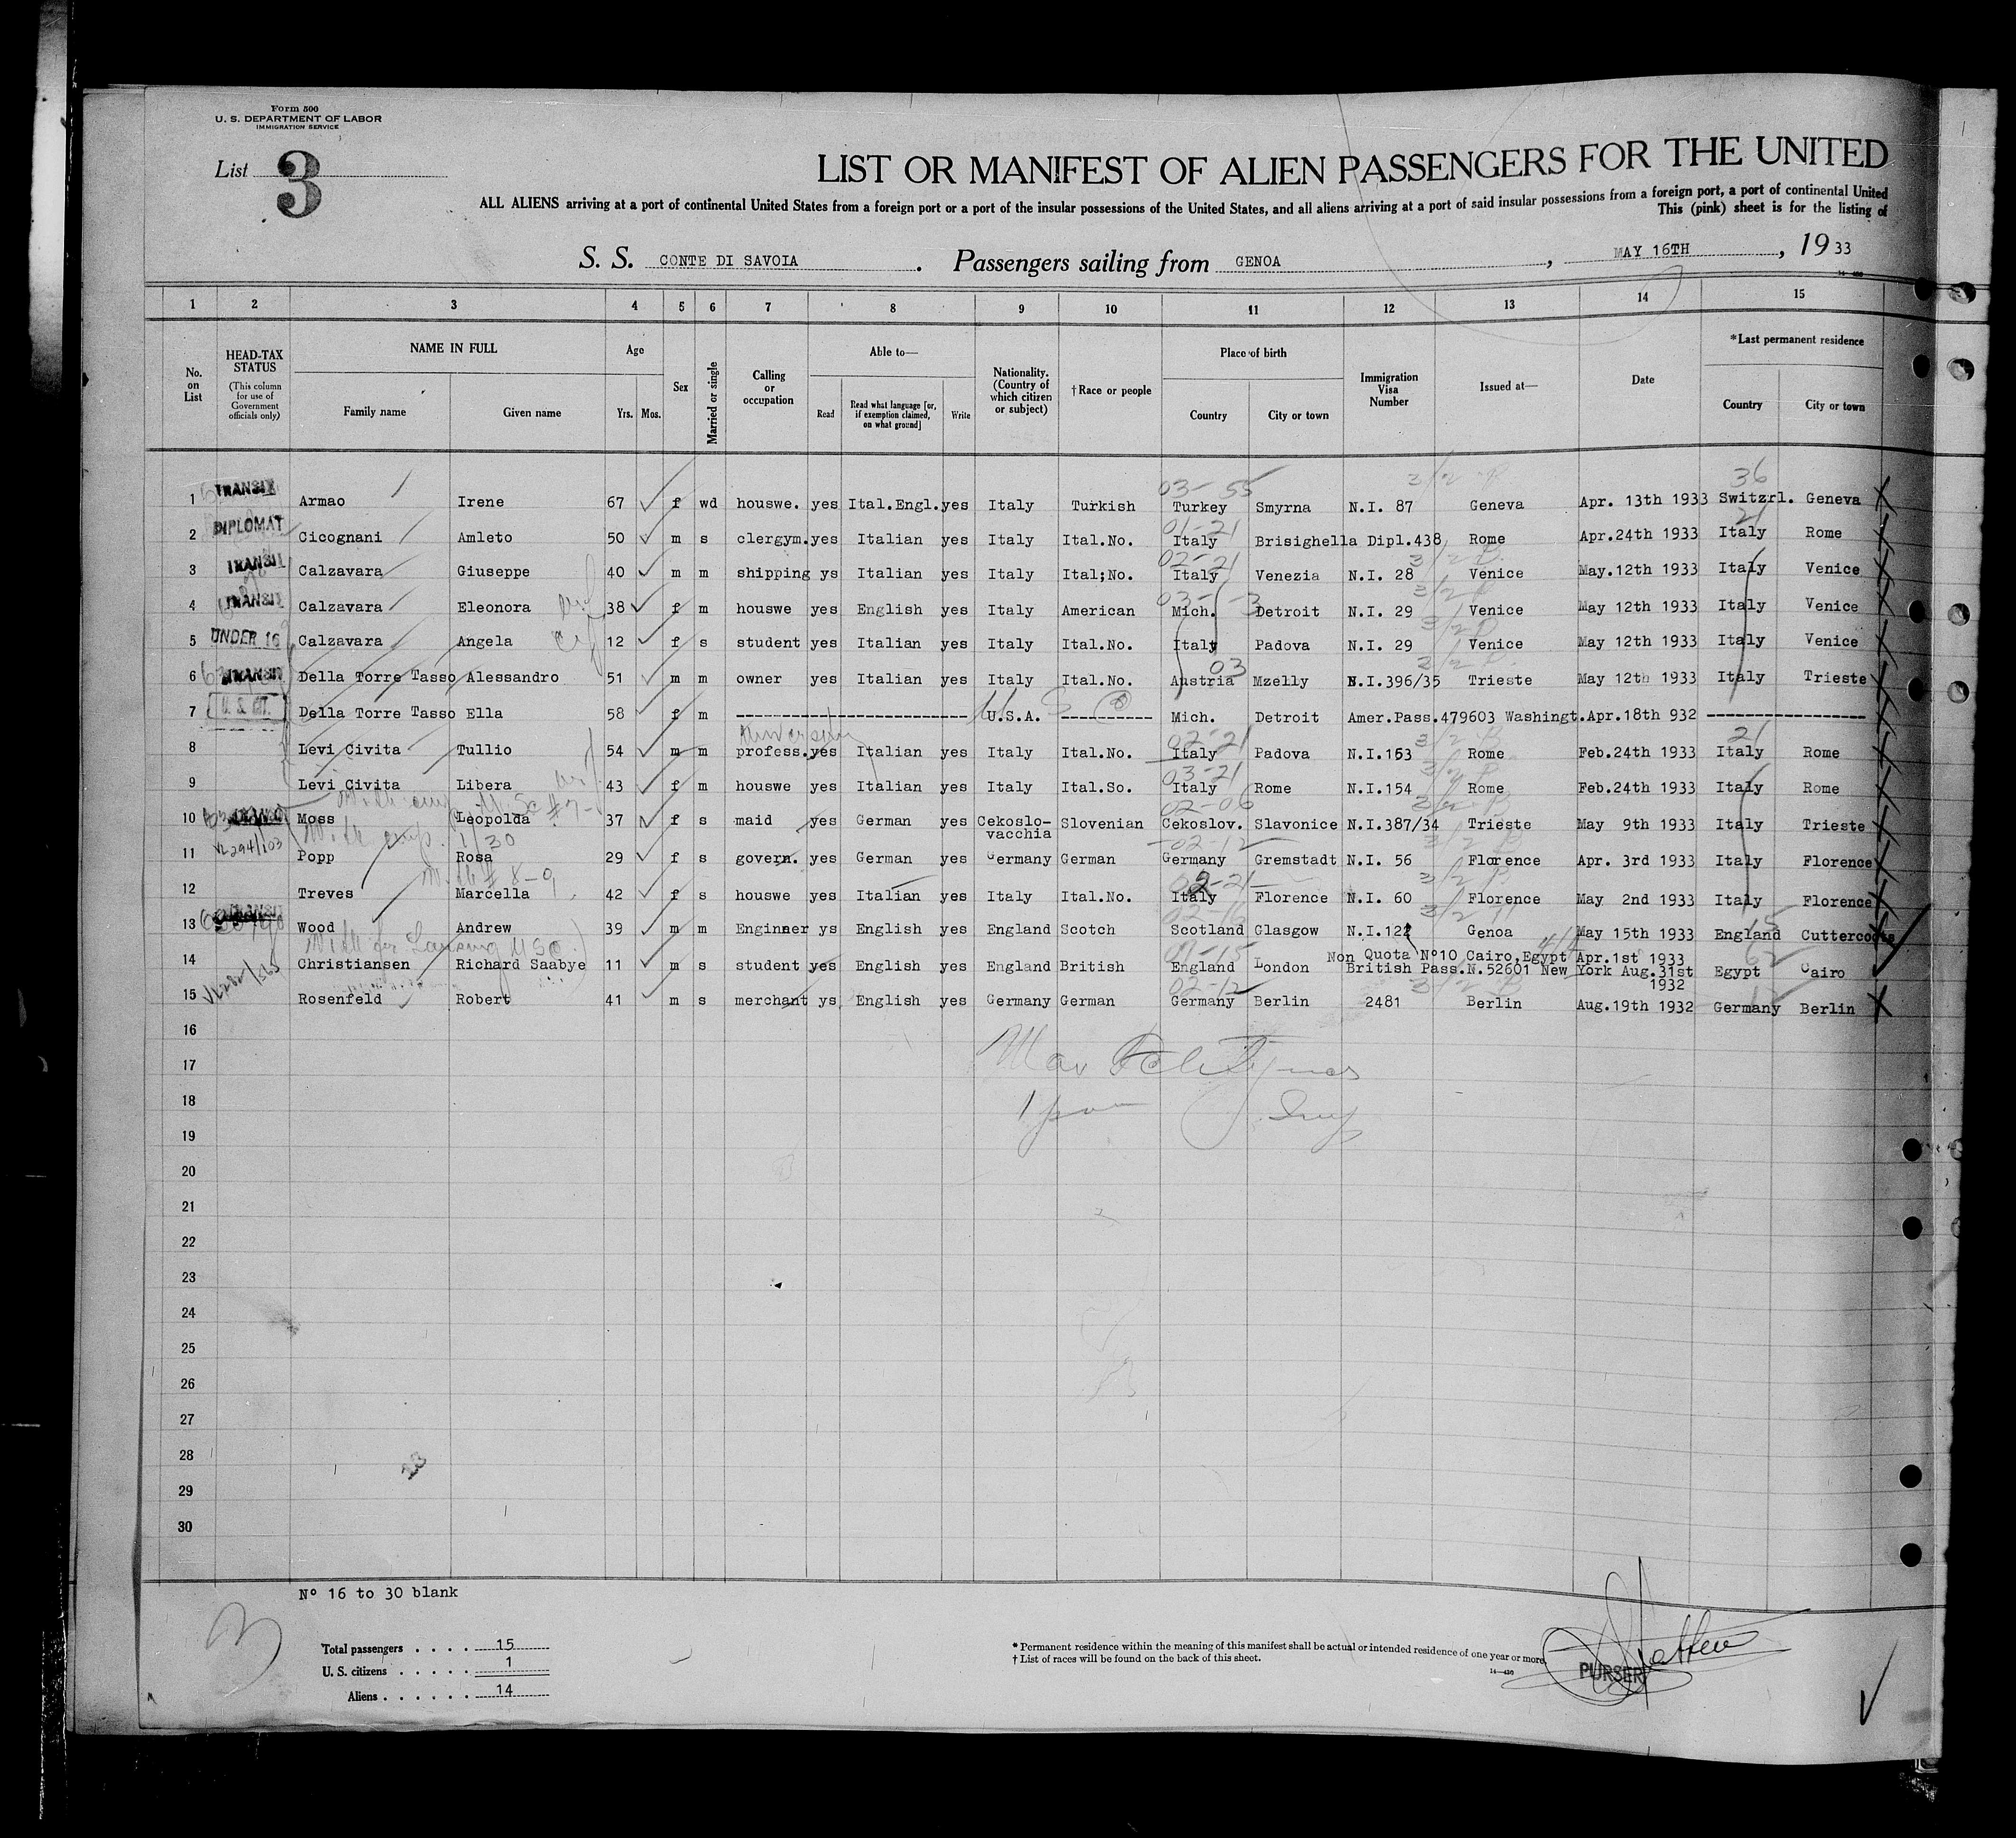 Form 500
U. S. DEPARTMENT OF LABOR
IMMIGRATION SERVICE
List 3
LIST OR MANIFEST OF ALIEN PASSENGERS FOR THE UNITED
ALL ALIENS arriving at a port of continental United States from a foreign port or a port of the insular possessions of the United States, and all aliens arriving at a port of said insular possessions from a foreign port, a port of continental United
This (pink) sheet is for the listing of
S. S. CONTE DI SAVOIA . Passengers sailing from GENOA , MAY 16TH , 19 33
1 2 3 4 5 6 7 8 9 10 11 12 13 14 15
No. on List
HEAD-TAX STATUS (This column for use of Government officials only)
NAME IN FULL Family name Given name
Age Yrs. Mos.
Sex
Married or single
Calling or occupation
Able to— Read Read what language [or, if exemption claimed, on what ground] Write
Nationality. (Country of which citizen or subject)
†Race or people
Place of birth Country City or town
Immigration Visa Number
Issued at—
Date
*Last permanent residence Country City or town
03-55 36
1 TRANSIT Armao Irene 67 f wd houswe. yes Ital.Engl. yes Italy Turkish Turkey Smyrna N.I. 87 Geneva Apr. 13th 1933 Switzrl. Geneva
01-21 21
2 DIPLOMAT Cicognani Amleto 50 m s clergym. yes Italian yes Italy Ital.No. Italy Brisighella Dipl.438 Rome Apr.24th 1933 Italy Rome
02-21
3 TRANSIT Calzavara Giuseppe 40 m m shipping ys Italian yes Italy Ital;No. Italy Venezia N.I. 28 Venice May.12th 1933 Italy Venice
4 TRANSIT Calzavara Eleonora 38 f m houswe yes English yes Italy American Mich. Detroit N.I. 29 Venice May 12th 1933 Italy Venice
5 UNDER 16 Calzavara Angela 12 f s student yes Italian yes Italy Ital.No. Italy Padova N.I. 29 Venice May 12th 1933 Italy Venice
03
6 TRANSIT Della Torre Tasso Alessandro 51 m m owner yes Italian yes Italy Ital.No. Austria Mzelly N.I.396/35 Trieste May 12th 1933 Italy Trieste
7 U. S. CIT. Della Torre Tasso Ella 58 f m ---------- U.S.A. ---------- Mich. Detroit Amer.Pass.479603 Washingt. Apr.18th 932 ----------
University 02-21 21
8 Levi Civita Tullio 54 m m profess. yes Italian yes Italy Ital.No. Italy Padova N.I.153 Rome Feb.24th 1933 Italy Rome
03-21
9 Levi Civita Libera 43 f m houswe yes Italian yes Italy Ital.So. Italy Rome N.I.154 Rome Feb.24th 1933 Italy Rome
02-06
10 Moss Leopolda 37 f s maid yes German yes Cekoslo-vacchia Slovenian Cekoslov. Slavonice N.I.387/34 Trieste May 9th 1933 Italy Trieste
02-12
11 Popp Rosa 29 f s govern. yes German yes Germany German Germany Gremstadt N.I. 56 Florence Apr. 3rd 1933 Italy Florence
With # 8-9 02-21
12 Treves Marcella 42 f s houswe yes Italian yes Italy Ital.No. Italy Florence N.I. 60 Florence May 2nd 1933 Italy Florence
13 Wood Andrew 39 m m Enginner ys English yes England Scotch Scotland Glasgow N.I.122 Genoa May 15th 1933 England Cuttercoats
Non Quota Nº10 Cairo,Egypt Apr.1st 1933
14 Christiansen Richard Saabye 11 m s student yes English yes England British England London British Pass.N.52601 New York Aug.31st 1932 Egypt Cairo
02-12
15 Rosenfeld Robert 41 m s merchant ys English yes Germany German Germany Berlin 2481 Berlin Aug.19th 1932 Germany Berlin
16
17
18
19
20
21
22
23
24
25
26
27
28
29
30
Nº 16 to 30 blank
Total passengers . . . . 15
U. S. citizens . . . . . 1
Aliens . . . . . . 14
* Permanent residence within the meaning of this manifest shall be actual or intended residence of one year or more.
† List of races will be found on the back of this sheet.
PURSER